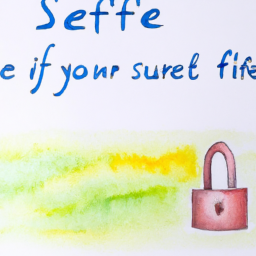 Seffe
e if your suret fife